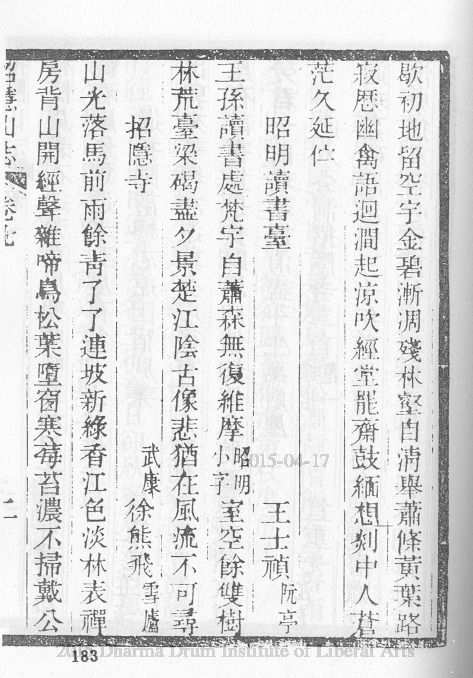 歇初地留空宇金碧漸凋殘林壑自清舉蕭條黃葉路
寂歷幽禽語迴澗起涼吹經堂罷齋鼓緬想剡中人蒼
茫久延伫
昭明讀書臺 王士禎 阮亭
王孫讀書處梵宇自蕭森無復維摩 昭明小字 室空餘雙樹
林荒臺梁碣盡夕景楚江陰古像悲猶在風流不可尋
招隱寺 武康 徐熊飛 雪廬
山光落馬前雨餘靑了了連坡新綠香江色淡林表禪
房背山開經聲雜啼鳥松葉墮窗寒莓苔濃不掃戴公
招隱山志 卷九 二
2015-04-17
183
Dharma Drum Institute of Liberal Arts